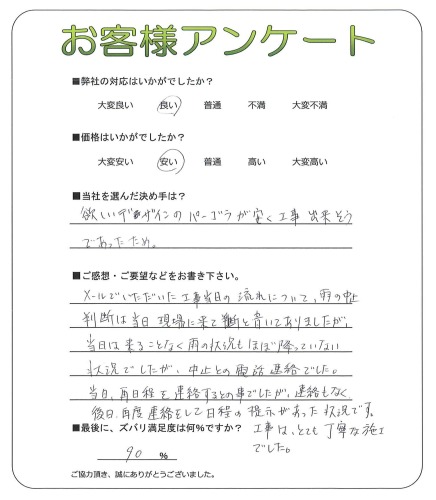 お客様アンケート
■弊社の対応はいかがでしたか？
大変良い 良い 普通 不満 大変不満
■価格はいかがでしたか？
大変安い 安い 普通 高い 大変高い
■当社を選んだ決め手は？
欲しいデザインのパーゴラが安く工事出来そう
であったため。
■ご感想・ご要望などをお書き下さい。
メールでいただいた工事当日の流れについて、雨の中止
判断は当日現場に来て判断と書いてありましたが、
当日は来ることなく雨の状況もほぼ降っていない
状況でしたが、中止との電話連絡でした。
当日、再日程を連絡するとの事でしたが、連絡もなく
後日、再度連絡をして日程の提示があった状況です。
工事は、とても丁寧な施工
でした。
■最後に、ズバリ満足度は何％ですか？
90 ％
ご協力頂き、誠にありがとうございました。